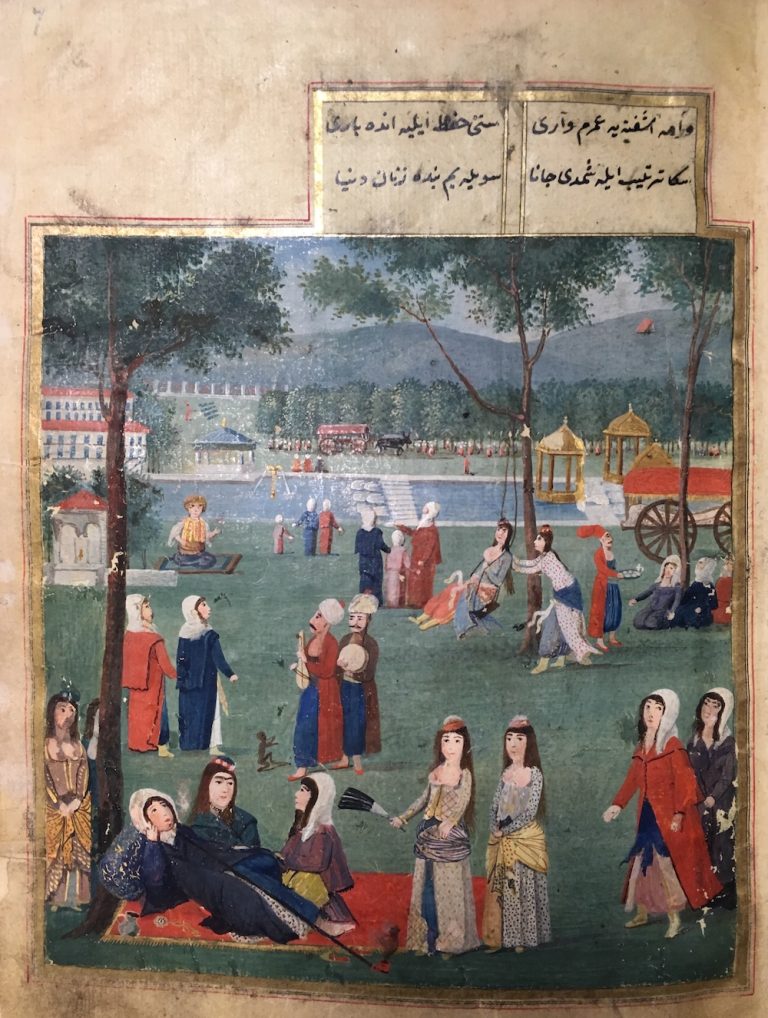 وارمه اشفته یه عمرم واری سنی حفظ ایلیه انده باری
سکا ترتیب ایله شمدی جانا سویله یم بنده زنان دنیا